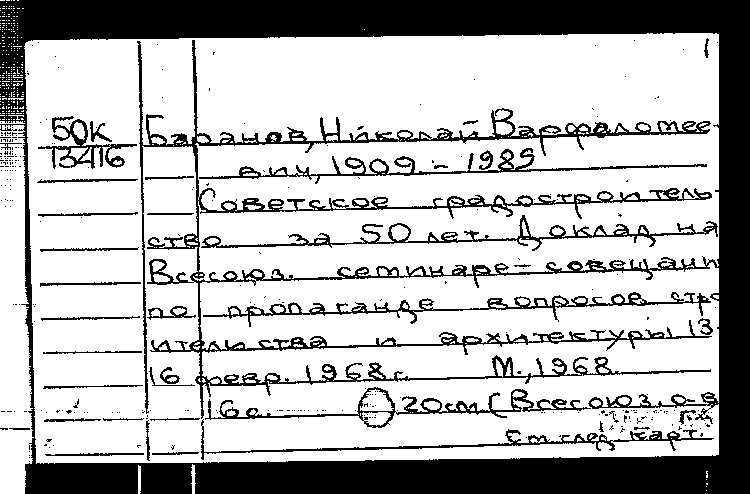 1
50К Баранов, Николай Варфоломее-
13416 вич, 1909 - 1989
Советское градостроитель-
ство за 50 лет. Доклад на
Всесоюз. семинаре-совещани
по пропаганде вопросов стро
ительства и архитектуры 13-
16 февр. 1968 г. М., 1968.
16 с. 20 см (Всесоюз. о-в
См. след. карт.